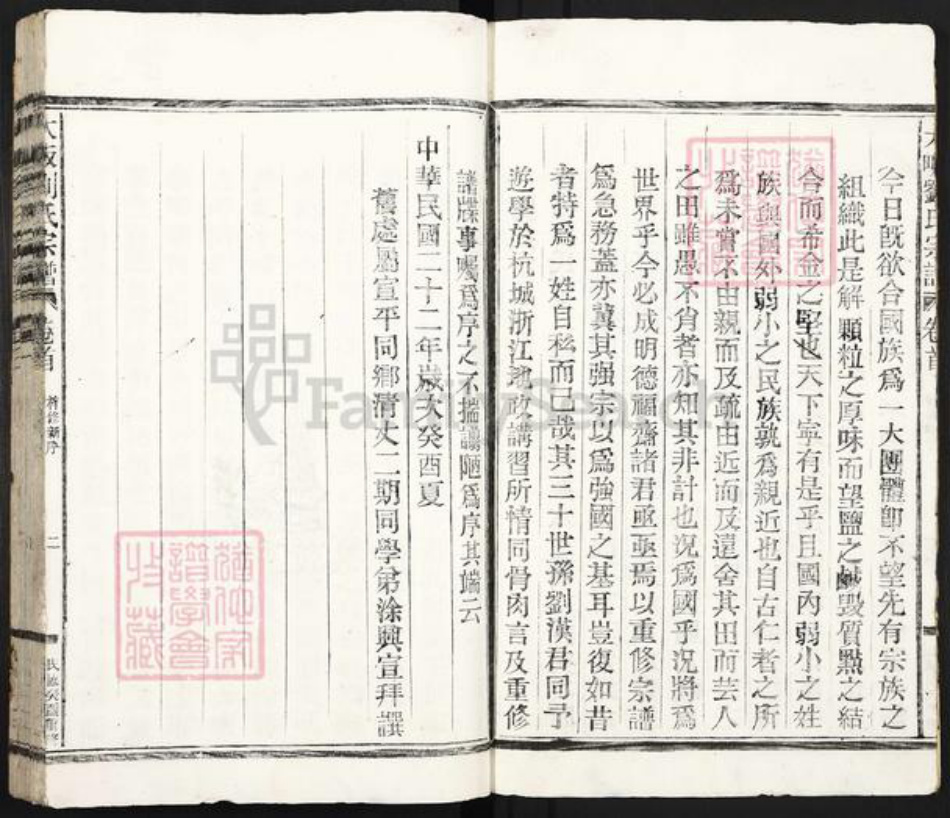 今日旣欲合國族爲一大團體卽不望先有宗族之
組織此是解顆粒之厚味而望鹽之鹹毀質點之結
合而希金之堅也天下寧有是乎且國內弱小之姓
族與國外弱小之民族孰爲親近也自古仁者之所
爲未嘗不由親而及疏由近而及遠舍其田而芸人
之田雖愚不肖者亦知其非計也況爲國乎況將爲
世界乎今必成明德福齋諸君亟亟焉以重修宗譜
爲急務蓋亦冀其强宗以爲強國之基耳豈復如昔
者特爲一姓自私而已哉其三十世孫劉漢君同予
遊學於杭城浙江地政講習所情同骨肉言及重修
譜牒事囑爲序之不揣譾陋爲序其端云
中華民國二十二年歲次癸酉夏
舊處屬宣平同鄉清丈二期同學弟涂興宣拜譔
劉氏宗譜
卷首
新序
二
劉氏宗譜
卷首
FamilySearch
譜學會
收藏
譜學會
收藏